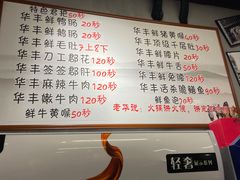 特色君把50秒
华丰鲜鸭肠20秒
华丰鲜鹅肠20秒
华丰鲜毛肚7上8下
华丰刀工郡花120秒
华丰签签郡肝100秒
华丰麻辣牛肉120秒
华丰嫩牛肉120秒
鲜牛黄喉50秒
华丰鲜猪黄喉60秒
华丰顶级千层肚
华丰鲜腰片20秒
华丰鲜牛舌50秒
华丰鲜兔腰120秒
华丰活杀嫩鳝鱼90秒
鲜鱼泡
老华说：火锅拼火候
轻奢